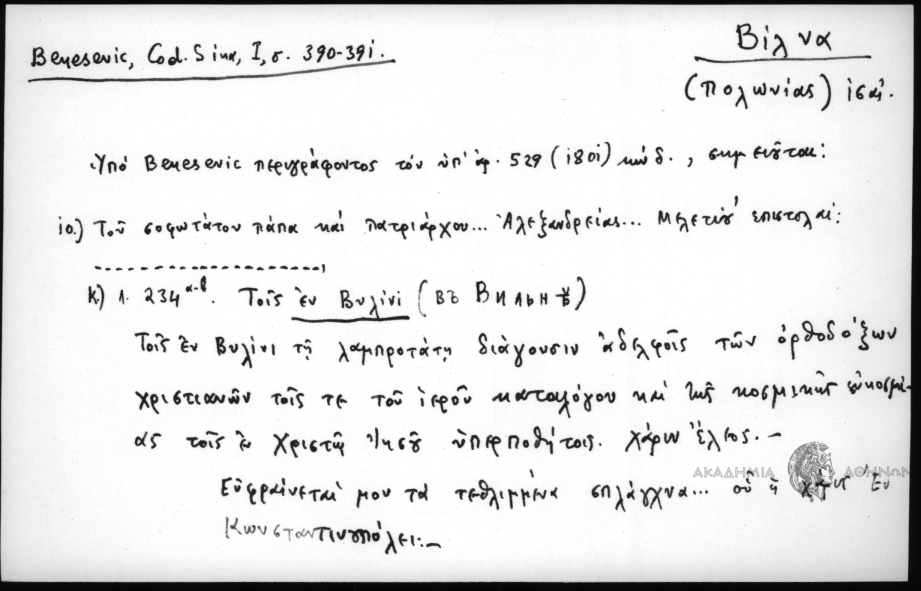 Benesevic, Cod. Sina, I, σ. 390-391.
Βίλνα
(Πολωνίας)
Ὑπό Benesevic περιγράφοντος τόν ὑπ' ἀρ. 529 (1801) κώδ., σημειοῦται:
10.) Τοῦ σοφωτάτου πάπα καί πατριάρχου... Ἀλεξανδρείας... Μελετίου ἐπιστολαί:
κ) λ. 234 α-β. Τοῖς ἐν Βυλίνι (въ Вильнѣ)
Τοῖς ἐν Βυλίνι τῇ λαμπροτάτῃ διάγουσιν ἀδελφοῖς τῶν ὀρθοδόξων
χριστιανῶν τοῖς τε τοῦ ἱεροῦ καταλόγου καί τῆς κοσμικῆς εὐκοσμί-
ας τοῖς ἐν Χριστῷ Ἰησοῦ ὑπερποθήτοις. χάριν ἔλεος.-
ΑΚΑΔΗΜΙΑ ΑΘΗΝΩΝ
Εὐφραίνεταί μου τά τεθλιμμένα σπλάγχνα... οὗ ἡ χάρις Ἐν
Κωνσταντινουπόλει:-